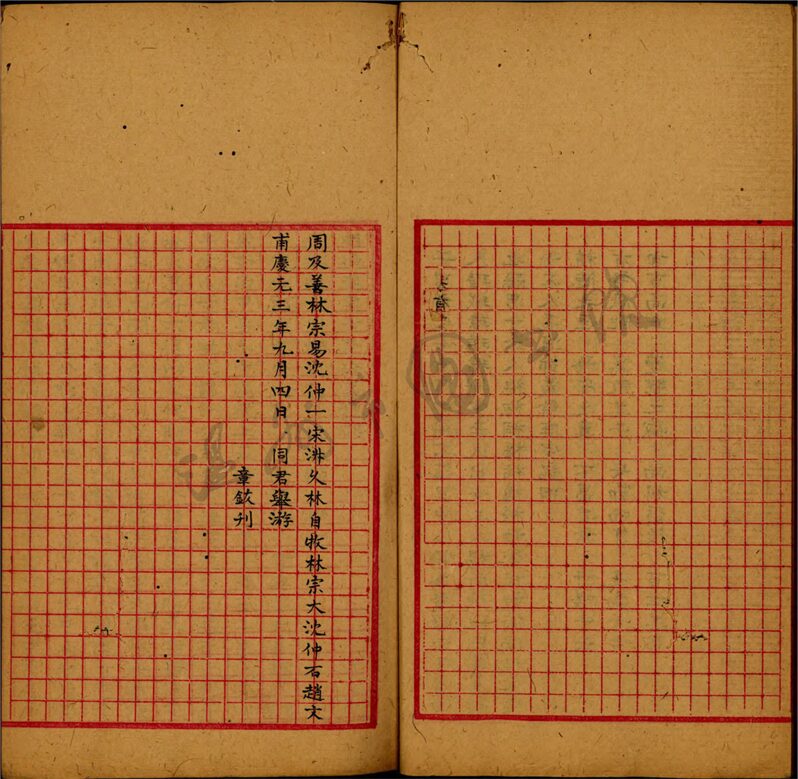 周及善林宗易沈仲一宋淋久林自牧林宗大沈仲石趙文
甫慶元三年九月四日 同君舉游
章鈜刊